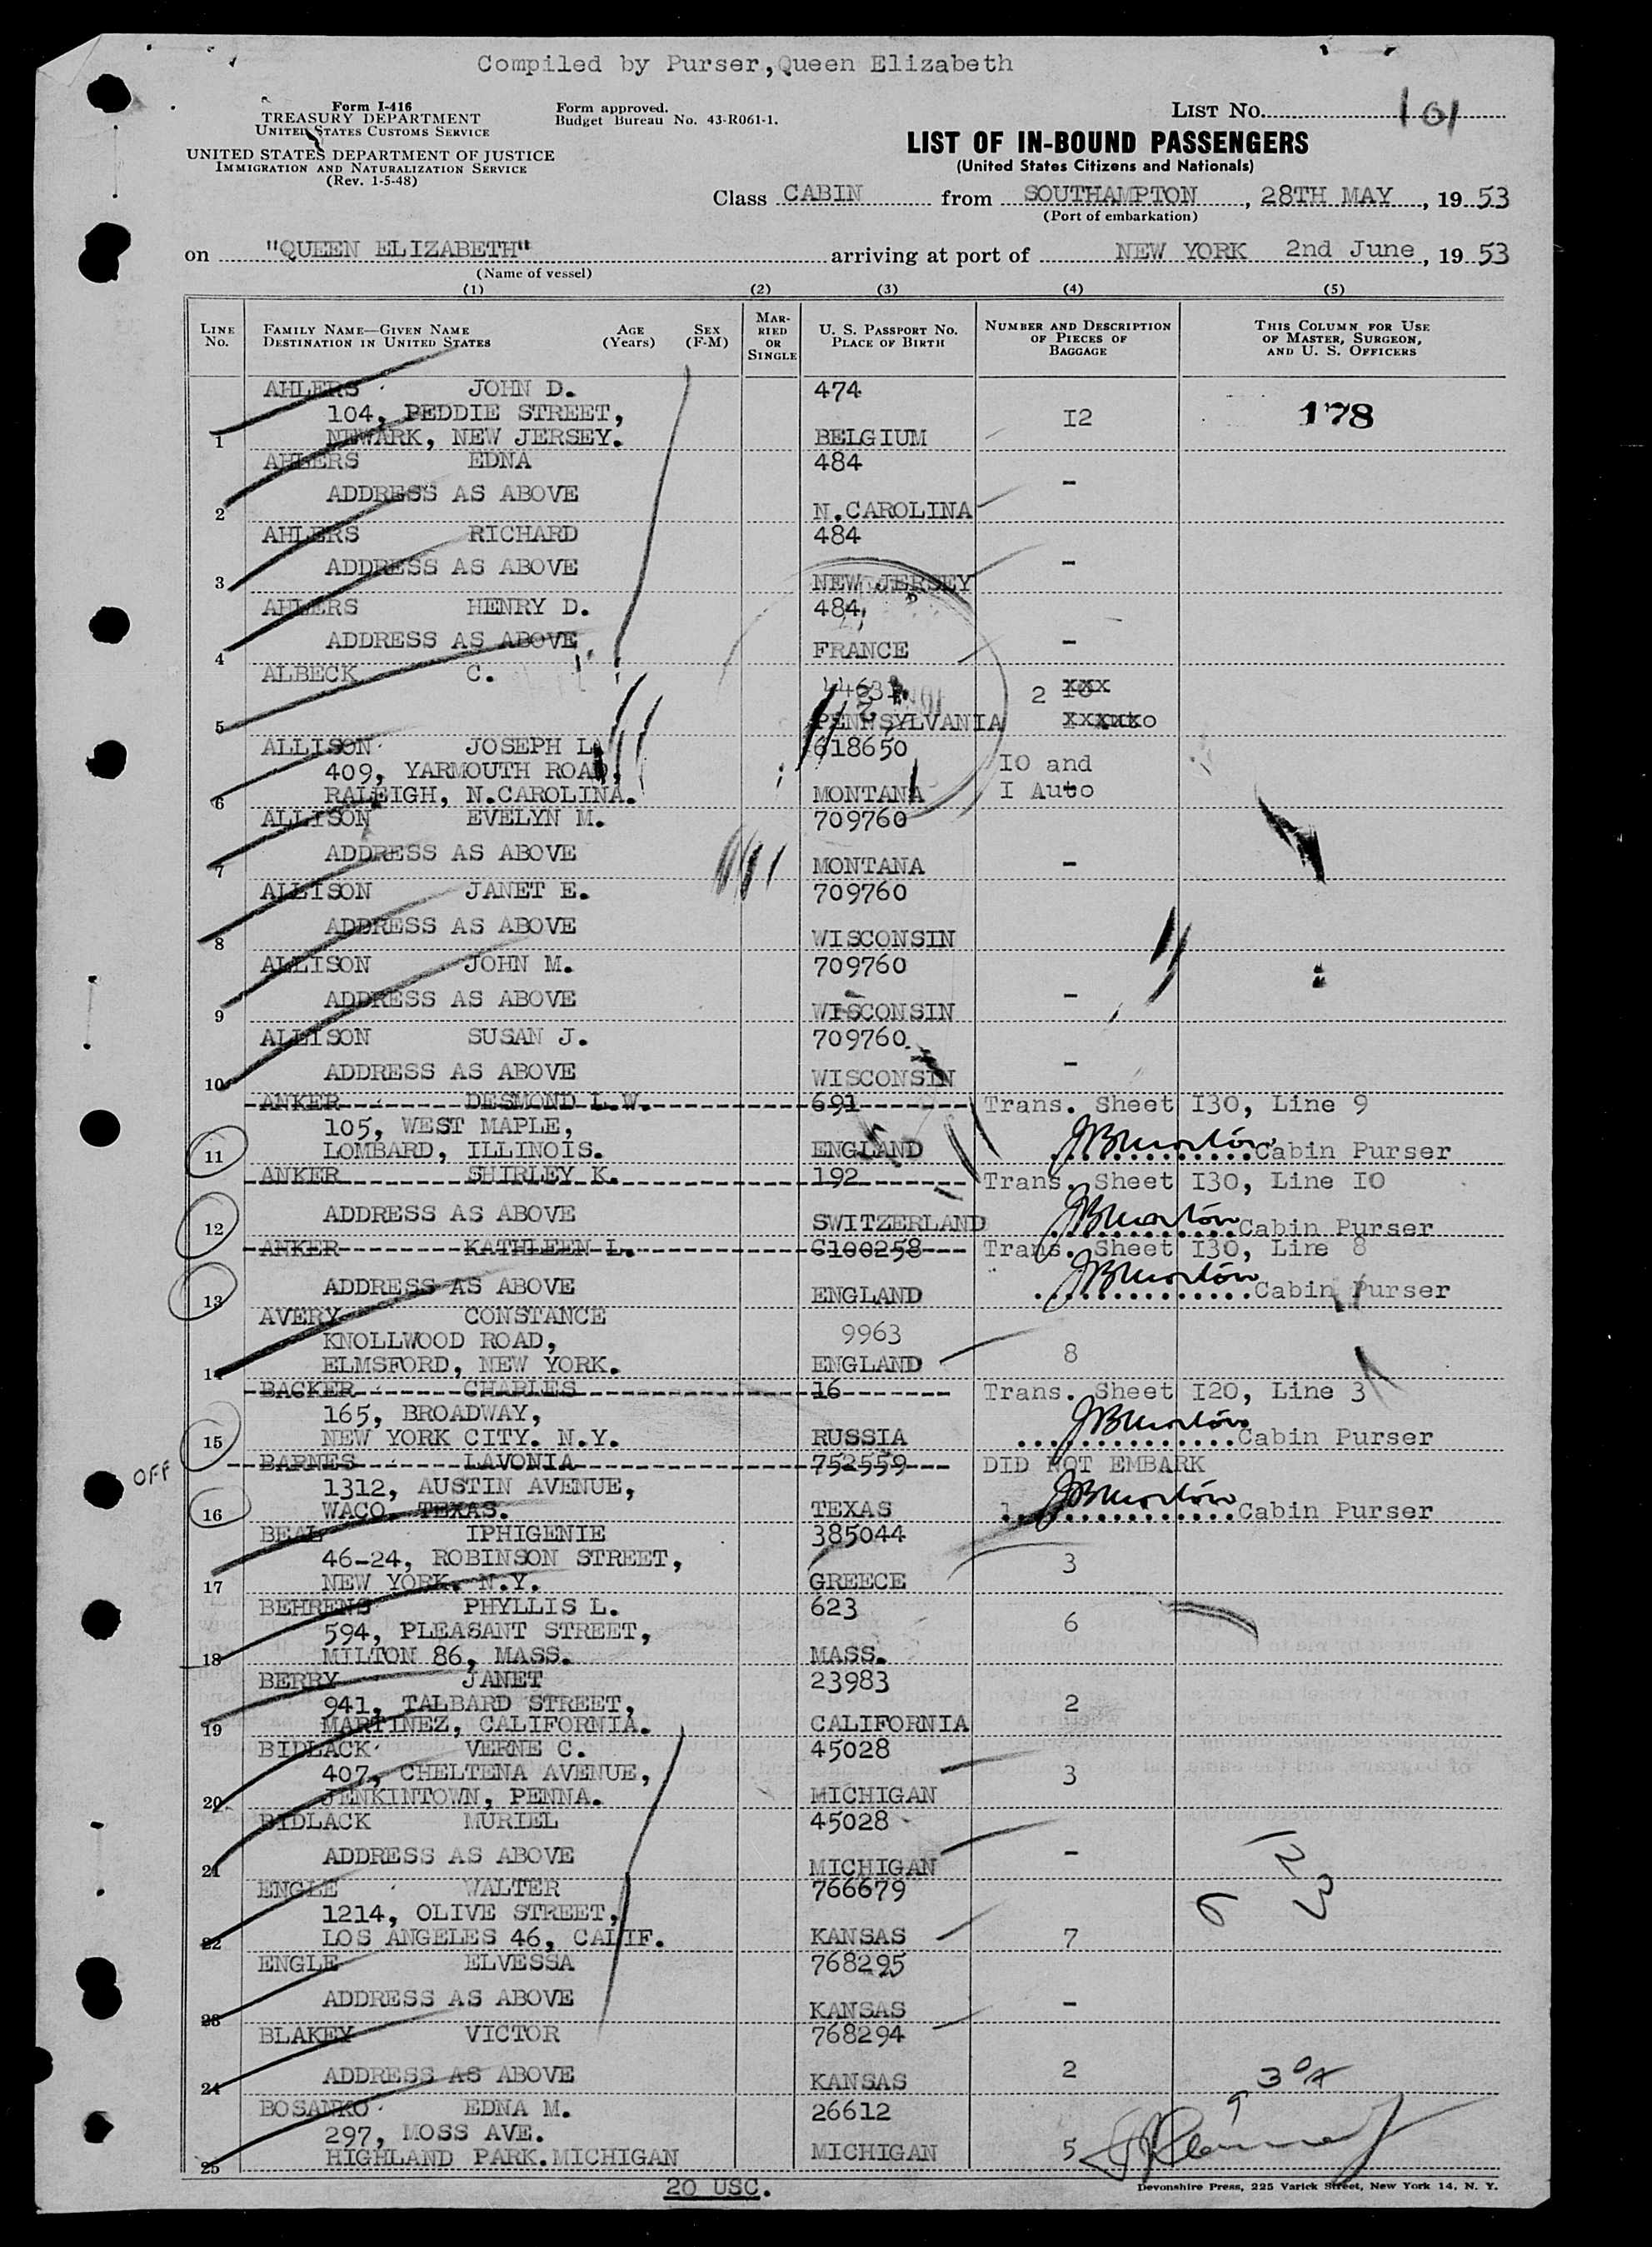 Compiled by Purser, Queen Elizabeth
Form I-416
TREASURY DEPARTMENT
UNITED STATES CUSTOMS SERVICE
UNITED STATES DEPARTMENT OF JUSTICE
IMMIGRATION AND NATURALIZATION SERVICE
(Rev. 1-5-48)
Form approved.
Budget Bureau No. 43-R061-1.
LIST No. 161
LIST OF IN-BOUND PASSENGERS
(United States Citizens and Nationals)
Class CABIN from SOUTHAMPTON, 28TH MAY, 1953
(Port of embarkation)
on "QUEEN ELIZABETH" arriving at port of NEW YORK 2nd June, 1953
(Name of vessel)
(1) (2) (3) (4) (5)
LINE No. FAMILY NAME—GIVEN NAME DESTINATION IN UNITED STATES AGE (Years) SEX (F-M) MARRIED OR SINGLE U. S. PASSPORT NO. PLACE OF BIRTH NUMBER AND DESCRIPTION OF PIECES OF BAGGAGE THIS COLUMN FOR USE OF MASTER, SURGEON, AND U. S. OFFICERS
AHLERS JOHN D. 474
104, PEDDIE STREET, I2 178
1 NEWARK, NEW JERSEY. BELGIUM
AHLERS EDNA 484
ADDRESS AS ABOVE -
2 N.CAROLINA
AHLERS RICHARD 484
ADDRESS AS ABOVE -
3 NEW JERSEY
AHLERS HENRY D. 484
ADDRESS AS ABOVE -
4 FRANCE
ALBECK C. 2
5 PENNSYLVANIA
ALLISON JOSEPH L. 618650
409, YARMOUTH ROAD, IO and
6 RALEIGH, N.CAROLINA. MONTANA I Auto
ALLISON EVELYN M. 709760
ADDRESS AS ABOVE -
7 MONTANA
ALLISON JANET E. 709760
ADDRESS AS ABOVE
8 WISCONSIN
ALLISON JOHN M. 709760
ADDRESS AS ABOVE -
9 WISCONSIN
ALLISON SUSAN J. 709760
ADDRESS AS ABOVE -
10 WISCONSIN
ANKER DESMOND L.W. 691 Trans. Sheet I30, Line 9
105, WEST MAPLE,
11 LOMBARD, ILLINOIS. ENGLAND Cabin Purser
ANKER SHIRLEY K. 192 Trans. Sheet I30, Line IO
ADDRESS AS ABOVE
12 SWITZERLAND Cabin Purser
ANKER KATHLEEN L. C100258 Trans. Sheet I30, Line 8
ADDRESS AS ABOVE
13 ENGLAND Cabin Purser
AVERY CONSTANCE
KNOLLWOOD ROAD, 9963
14 ELMSFORD, NEW YORK. ENGLAND 8
BACKER CHARLES 16 Trans. Sheet I20, Line 3
165, BROADWAY,
15 NEW YORK CITY. N.Y. RUSSIA Cabin Purser
OFF BARNES LAVONIA 752559 DID NOT EMBARK
1312, AUSTIN AVENUE,
16 WACO, TEXAS. TEXAS 1 Cabin Purser
BEAL IPHIGENIE 385044
46-24, ROBINSON STREET, 3
17 NEW YORK. N.Y. GREECE
BEHRENS PHYLLIS L. 623
594, PLEASANT STREET, 6
18 MILTON 86, MASS. MASS.
BERRY JANET 23983
941, TALBARD STREET, 2
19 MARTINEZ, CALIFORNIA. CALIFORNIA
BIDLACK VERNE C. 45028
407, CHELTENA AVENUE, 3
20 JENKINTOWN, PENNA. MICHIGAN
BIDLACK MURIEL 45028
ADDRESS AS ABOVE -
21 MICHIGAN
ENGLE WALTER 766679
1214, OLIVE STREET,
22 LOS ANGELES 46, CALIF. KANSAS 7
ENGLE ELVESSA 768295
ADDRESS AS ABOVE -
23 KANSAS
BLAKEY VICTOR 768294
ADDRESS AS ABOVE 2
24 KANSAS
BOSANKO EDNA M. 26612
297, MOSS AVE.
25 HIGHLAND PARK.MICHIGAN MICHIGAN 5
20 USC.
Devonshire Press, 225 Varick Street, New York 14, N. Y.